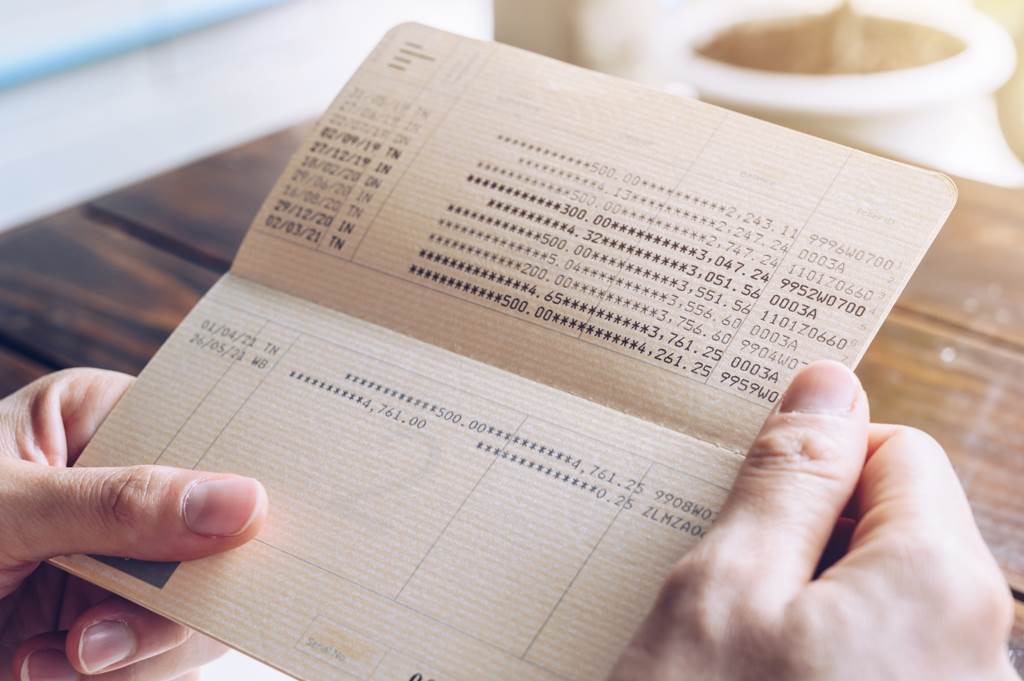 31/05/19 TN ************500.00************2,243.11 9996W0700
IN **************4.13************2,247.24 0003A
************500.00************2,747.24 1101Z0660
02/09/19 TN ************300.00************3,047.24 9952W0700
27/12/19 IN **************4.32************3,051.56 0003A
18/02/20 DN ************500.00************3,551.56 1101Z0660
29/06/20 IN **************5.04************3,556.60 0003A
16/08/20 DN ************200.00************3,756.60 9904W0
29/12/20 IN **************4.65************3,761.25 0003A
02/03/21 TN ************500.00************4,261.25 9959W0
01/04/21 TN ************500.00************4,761.25 9908W0
26/05/21 WB **********4,761.00 ***************0.25 ZLMZA0
Serial No.